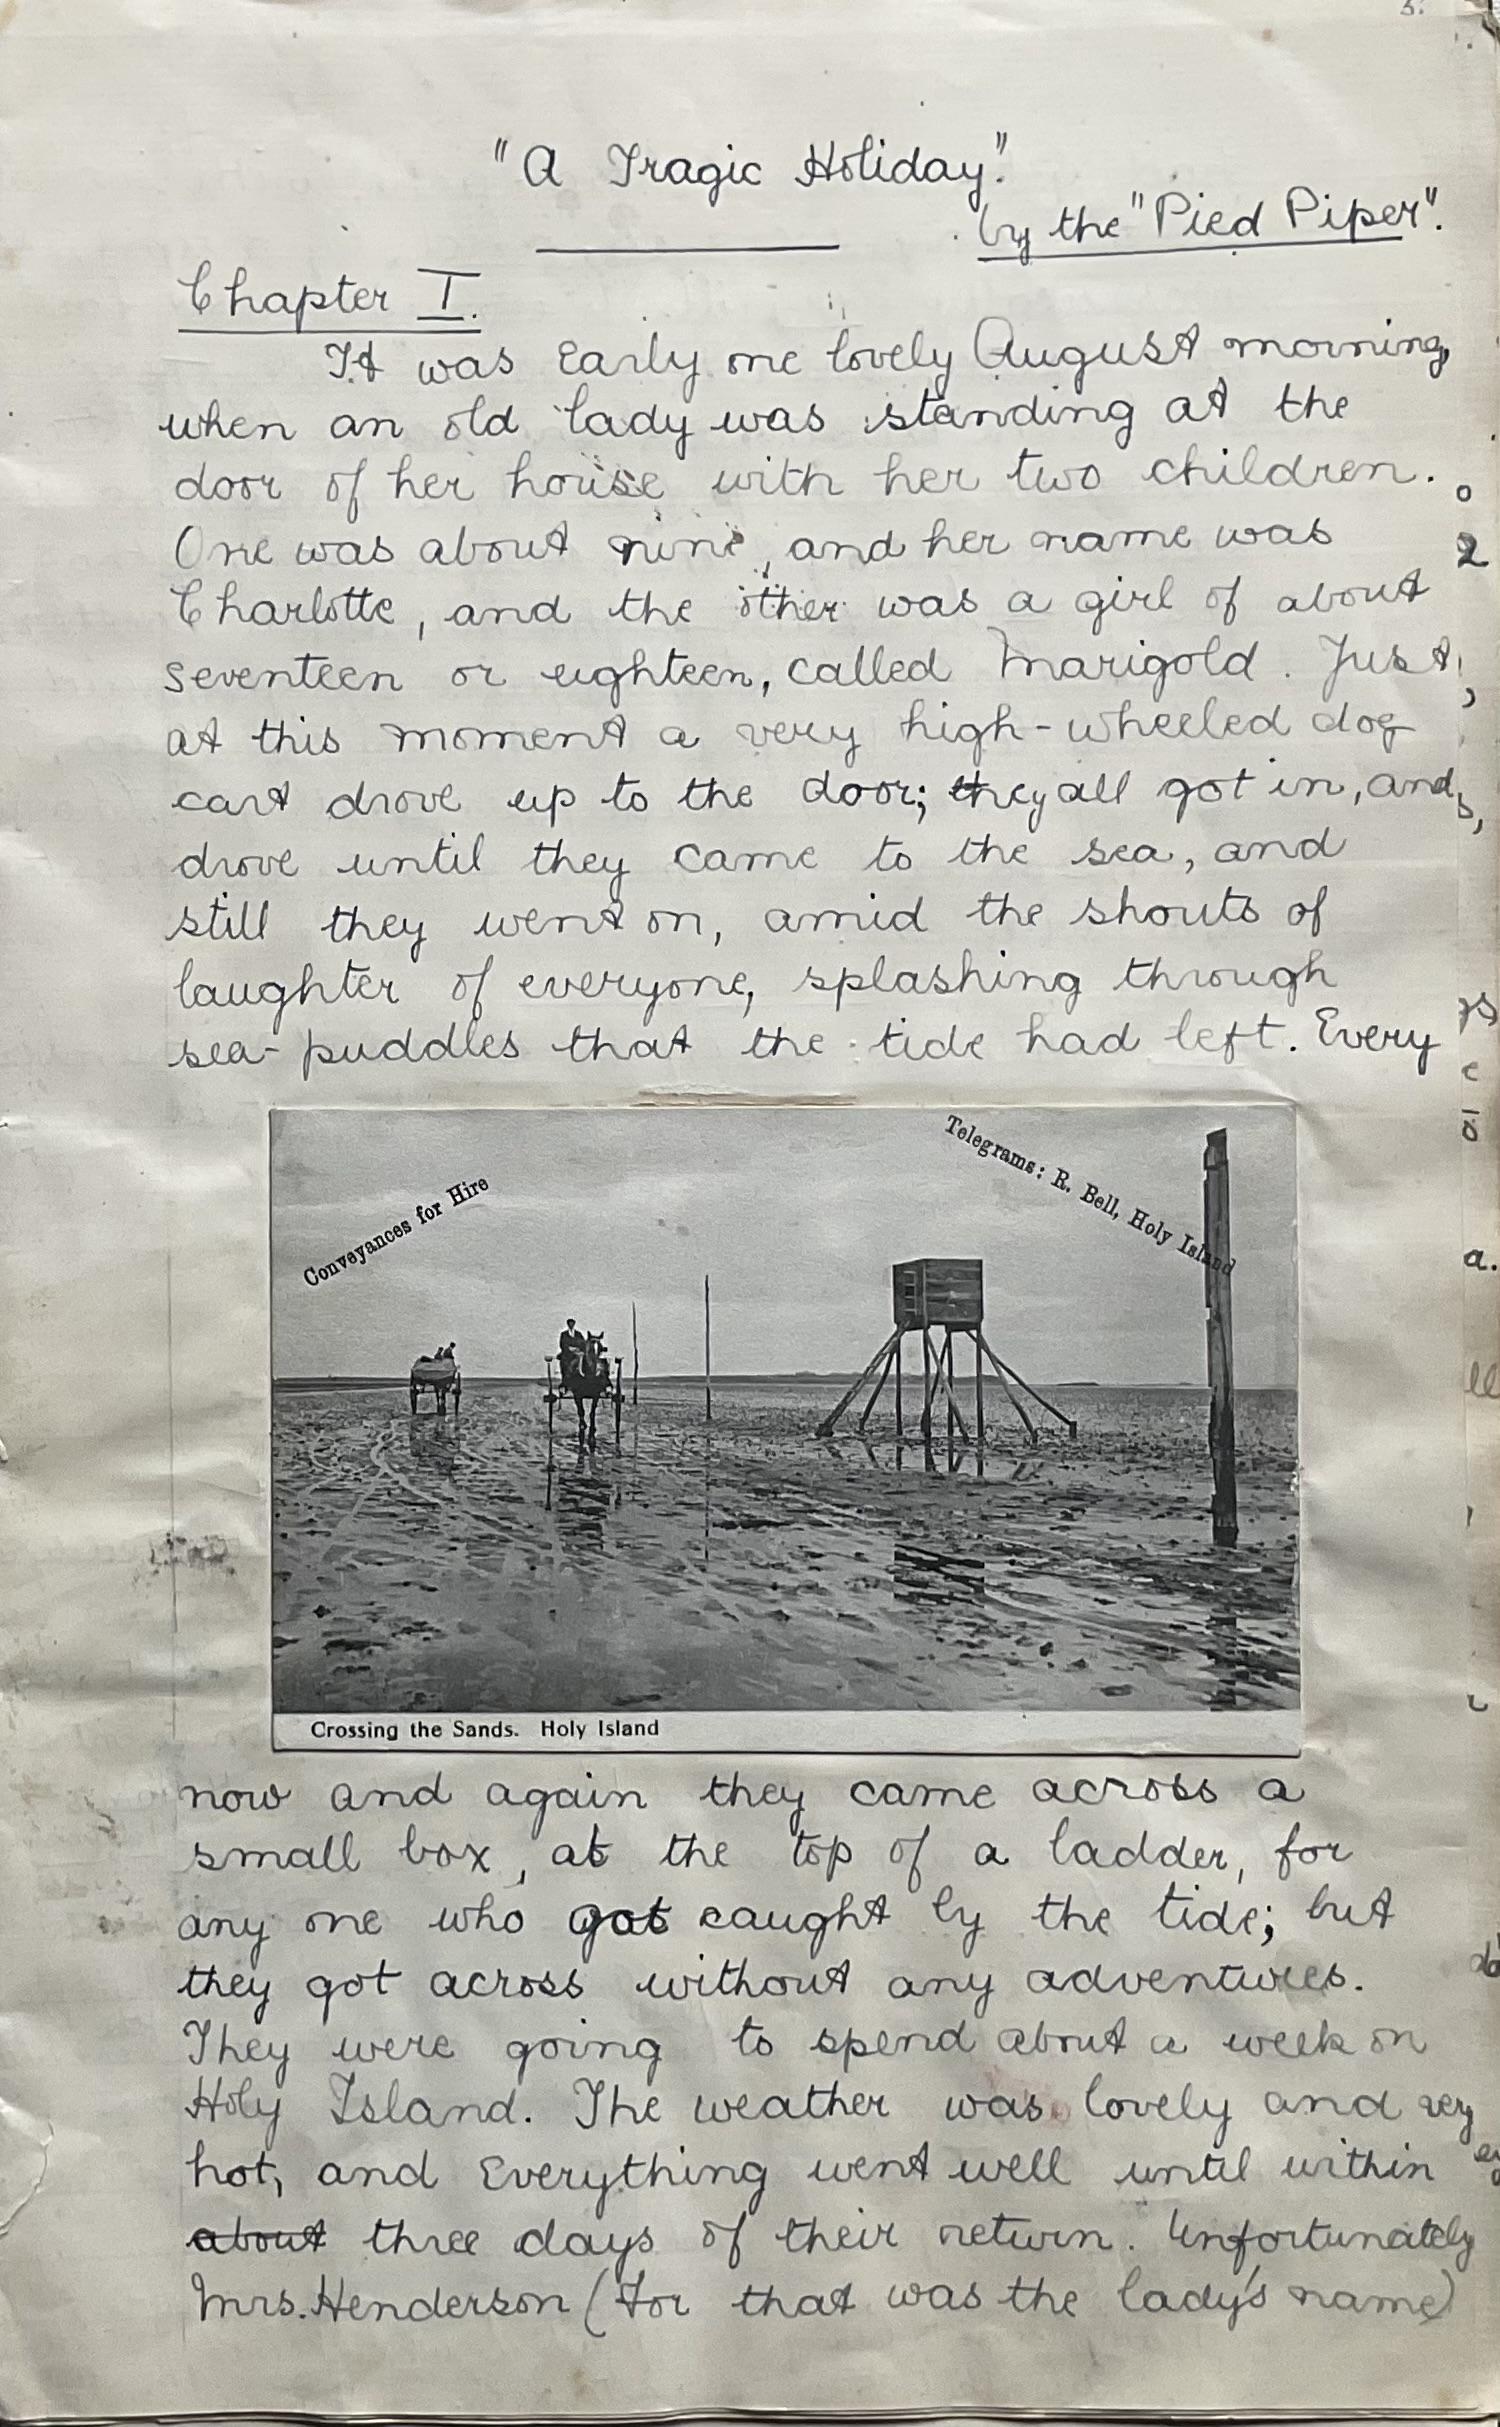 "A Tragic Holiday".
by the "Pied Piper".
Chapter I.
It was early one lovely August morning,
when an old lady was standing at the
door of her house with her two children.
One was about nine, and her name was
Charlotte, and the other was a girl of about
seventeen or eighteen, called Marigold. Just
at this moment a very high-wheeled dog
cart drove up to the door; they all got in, and
drove until they came to the sea, and
still they went on, amid the shouts of
laughter of everyone, splashing through
sea-puddles that the tide had left. Every
Conveyances for Hire
Telegrams: R. Bell, Holy Island
Crossing the Sands. Holy Island
now and again they came across a
small box, at the top of a ladder, for
any one who got caught by the tide; but
they got across without any adventures.
They were going to spend about a week on
Holy Island. The weather was lovely and very
hot, and everything went well until within
about three days of their return. Unfortunately
Mrs. Henderson (for that was the lady's name)